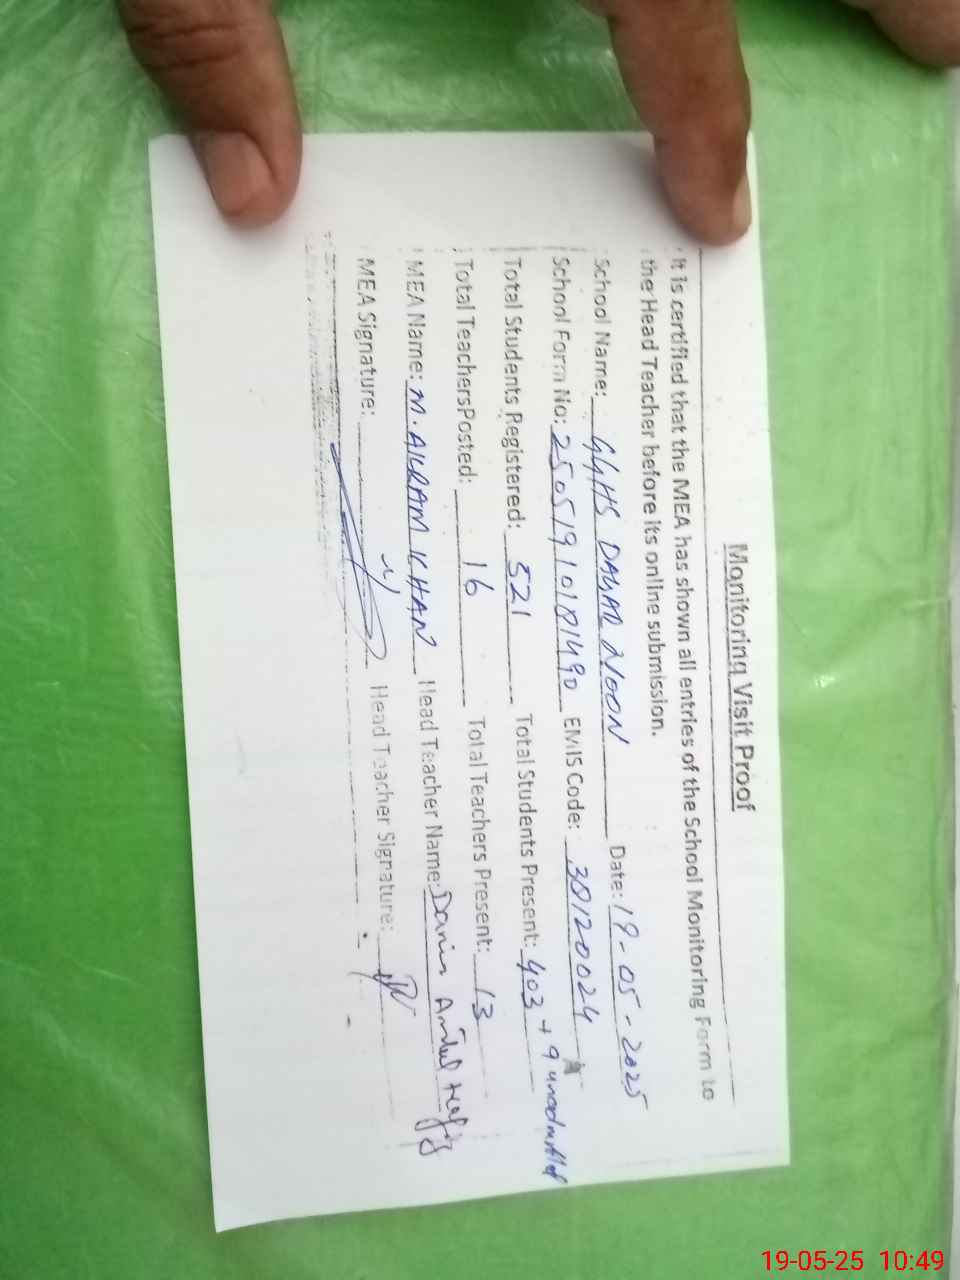 Monitoring Visit Proof
It is certified that the MEA has shown all entries of the School Monitoring Form to
the Head Teacher before its online submission.
School Name: GGHS DAUAD NOON Date: 19-05-2025
School Form No: 25051910181490 EMIS Code: 38120024
Total Students Registered: 521 Total Students Present: 403 + 9 unadmitted
Total TeachersPosted: 16 Total Teachers Present: 13
MEA Name: M. AKRAM KHAN Head Teacher Name:
MEA Signature: Head Teacher Signature:
19-05-25 10:49